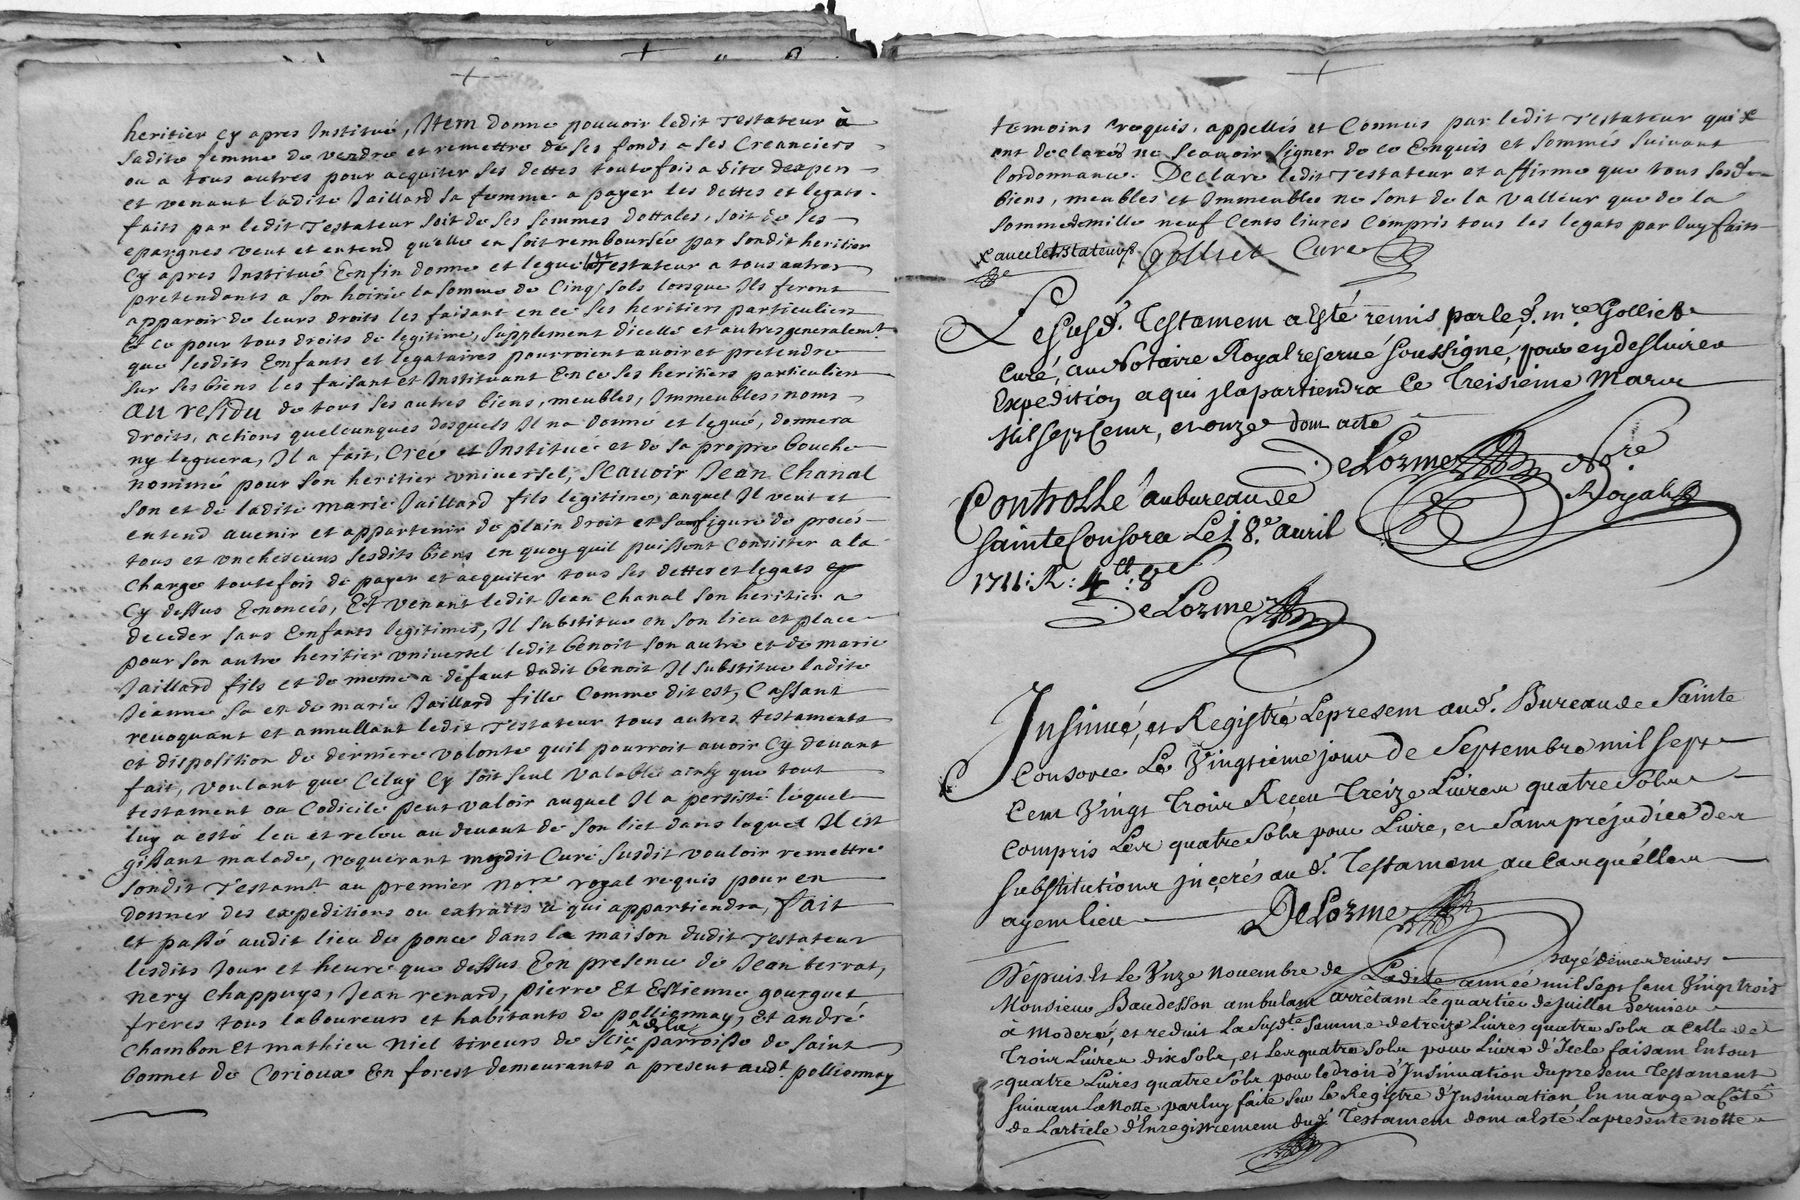 heritier cy apres Institué, Item donne pouuoir ledit Testateur à
sadite femme de vendre et remettre de ses fonds a ses Creanciers
ou a tous autres pour acquiter ses dettes toutefois a dite dexpen
et venant ladite Jaillard sa femme a payer les dettes et legats
faits par ledit Testateur soit de ses sommes dottales, soit de ses
epargnes veut et entend qu'elle en soit remboursée par sondit heritier
cy apres Institué Enfin donne et legue ledt Testateur a tous autres
pretendants a son hoirie la somme de Cinq sols lorsque Ils feront
apparoir de leurs droits les faisant en ce ses heritiers particuliers
Et ce pour tous droits de legitime, supplement dicelle et autres generalemt
que sesdits Enfants et legataires pourroient auoir et pretendre
sur ses biens les faisant et Instituant En ce ses heritiers particuliers
au residu de tous ses autres biens, meubles, Immeubles, noms
droits, actions quelcunques desquels Il na donné et legué, donnera
ny leguera, Il a fait, créé et Institué et de sa propre bouche
nommé pour son heritier vniversel, Scauoir Jean Chanal
son et de ladite marie Jaillard fils legitime, auquel Il veut et
entend auenir et appartenir de plain droit et sans figure de procés
tous et vnchescuns sesdits biens en quoy quil puissent Consister a la
Charge toutefois de payer et acquiter tous ses dettes et legats
Cy dessus Enoncés, Et venant ledit Jean Chanal son heritier a
deceder sans Enfants legitimes, Il substitue en son lieu et place
pour son autre heritier vniversel ledit benoit son autre et de marie
Jaillard fils et de meme a défaut dudit benoit Il substitue ladite
Jeanne sa et de marie Jaillard fille Comme dit est, Cassant
reuoquant et annullant ledit Testateur tous autres testaments
et disposition de derniere volonte quil pourroit auoir Cy deuant
fait, voulant que Celuy Cy soit seul valable ainsy que tout
testament ou Codicile peut valoir auquel Il a persisté lequel
luy a esté leu et releu au deuant de son lict dans lequel Il est
gissant malade, requerant moydit Curé susdit vouloir remettre
sondit Testamt au premier nore royal requis pour en
donner des expeditions ou extraits a qui appartiendra, fait
et passé audit lieu de ponce dans la maison dudit Testateur
lesdits Jour et heure que dessus En presence de Jean terrat,
nery Chappuys, Jean renard, pierre Et Estienne gourguet
freres tous laboureurs et habitants de pollionnay, Et andré
Chambon Et mathieu niel tireurs de Scie de la parroisse de saint
bonnet de Corioux En forest demeurants a present audt pollionnay
temoins requis, appellés et Connus par ledit Testateur qui x
ont declarés ne scauoir signer de ce Enquis et sommés suiuant
lordonnance. Declare ledit Testateur et affirme que tous ses
biens, meubles et Immeubles ne sont de la valleur que de la
somme de mille neuf Cents liures Compris tous les legats par luy faits
x auec le testateur Golliet Curé
Le susd. Testament a Esté remis par led. mre Golliet
Curé, au Notaire Royal reserué soussigné, pour en desliurer
Expedition a qui Il apartiendra Ce Treisieme Mars
Mil sept Cents, et onze dont acte
DeLorme Nore
Royal
Controllé au bureau de
Sainte Consorce Le 18e auril
1711: R: 4lt: 8s
DeLorme
Insinué, et Registré Le present aud. Bureau de Sainte
Consorce Le Vingtieme jour de Septembre mil sept
Cent Vingt Trois Receu Treize Liures quatre Sols
Compris Les quatre Sols pour Liure, et Sans préjudice des
substitutions inserés aud. Testament au Cas qu'elles
ayent lieu DeLorme
Depuis Et le Unze Nouembre de Ladite année mil sept Cent Vingt trois
Monsieur Baudesson ambulant arrêtant Le quartier de juillet dernier
a Moderé, et reduit La susdte Somme de treize Liures quatre sols a Celle de
Trois Liures dix Sols, et Les quatre Sols pour Liure d'Icele faisant En tout
quatre Liures quatre Sols pour le droit d'Insinuation du present Testament
suiuant La Notte par luy faite sur Le Registre d'Insinuation En marge a Côté
de L'article d'Enregistrement dud. Testament dont a Esté La presente notte